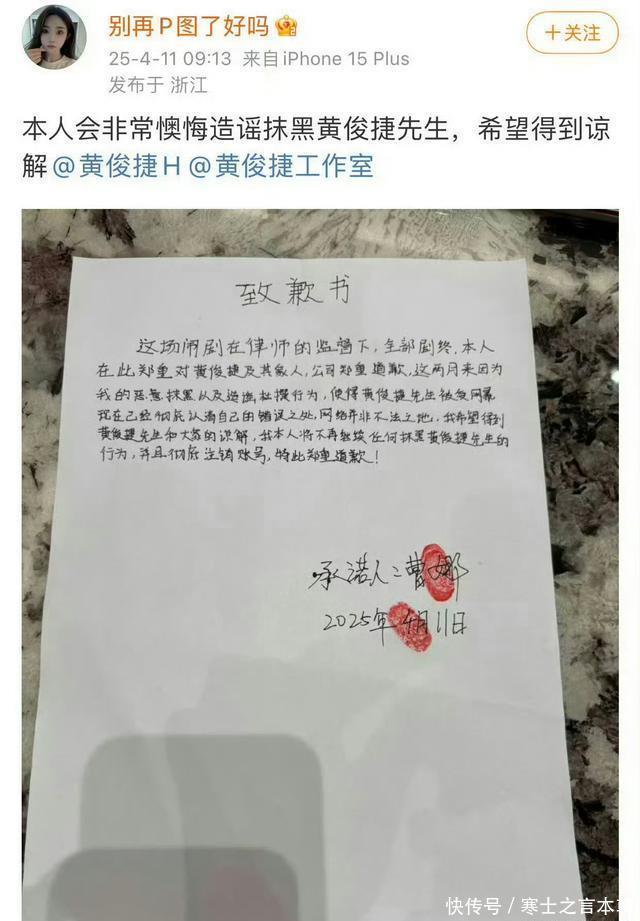 别再P图了好吗
25-4-11 09:13 来自iPhone 15 Plus
发布于 浙江
+关注
本人会非常懊悔造谣抹黑黄俊捷先生，希望得到谅
解@黄俊捷H @黄俊捷工作室
致歉书
这场闹剧在律师的监督下，全部剧终，本人
在此郑重对黄俊捷及其家人，公司郑重道歉，这两月来因为
我的恶意抹黑以及造谣杜撰行为，使得黄俊捷先生被受网暴
现在已经彻底认清自己的错误之处，网络并非不法之地，我希望得到
黄俊捷先生和大家的谅解，我本人将不再继续任何抹黑黄俊捷先生的
行为，并且彻底注销账号，特此郑重道歉！
承诺人：曹娜
2025年4月11日
快传号／寒士之言本